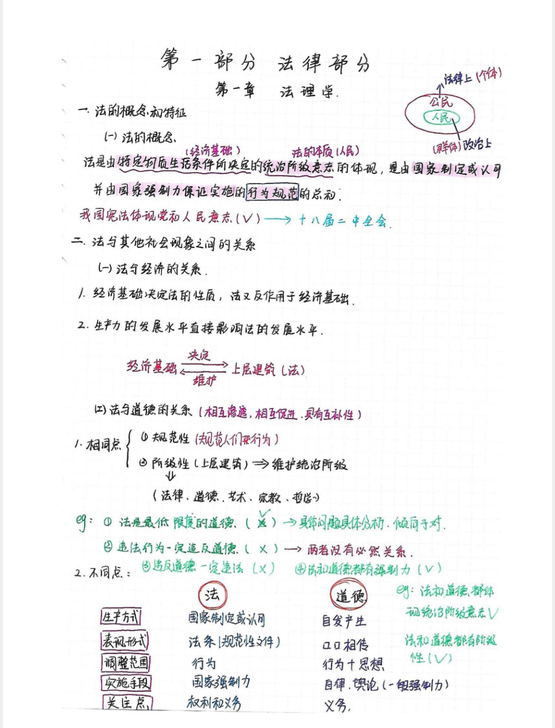 第一部分 法律部分
第一章 法理学.
法律上(个体)
公民
人民
(群体)政治上
一.法的概念和特征
(一)法的概念.
(经济基础) 法的本质(人民)
法是由特定物质生活条件所决定的统治阶级意志的体现,是由国家制定或认可
并由国家强制力保证实施的行为规范的总和.
我国宪法体现党和人民意志(√)→十八届二中全会.
二.法与其他社会现象之间的关系
(一)法与经济的关系.
1.经济基础决定法的性质,法又反作用于经济基础.
2.生产力的发展水平直接影响法的发展水平.
决定
经济基础 上层建筑(法)
维护
(二)法与道德的关系(相互渗透,相互促进,具有互补性)
1.相同点
①规范性(规范人们行为)
②阶级性(上层建筑)⇒维护统治阶级
(法律、道德、艺术、宗教、哲学)
eg:①法是最低限度的道德.(√)→具体问题具体分析,倾向于对.
②违法行为一定违反道德.(×)→两者没有必然关系.
③违反道德一定违法(×) ④法和道德都有强制力(√)
2.不同点:
法 道德
生产方式 国家制定或认可 自发产生
表现形式 法条(规范性文件) 口口相传
调整范围 行为 行为+思想
实施手段 国家强制力 自律、舆论(一般强制力)
关注点 权利和义务 义务.
eg:法和道德都体
现统治阶级意志√
法和道德都有阶级
性(√)